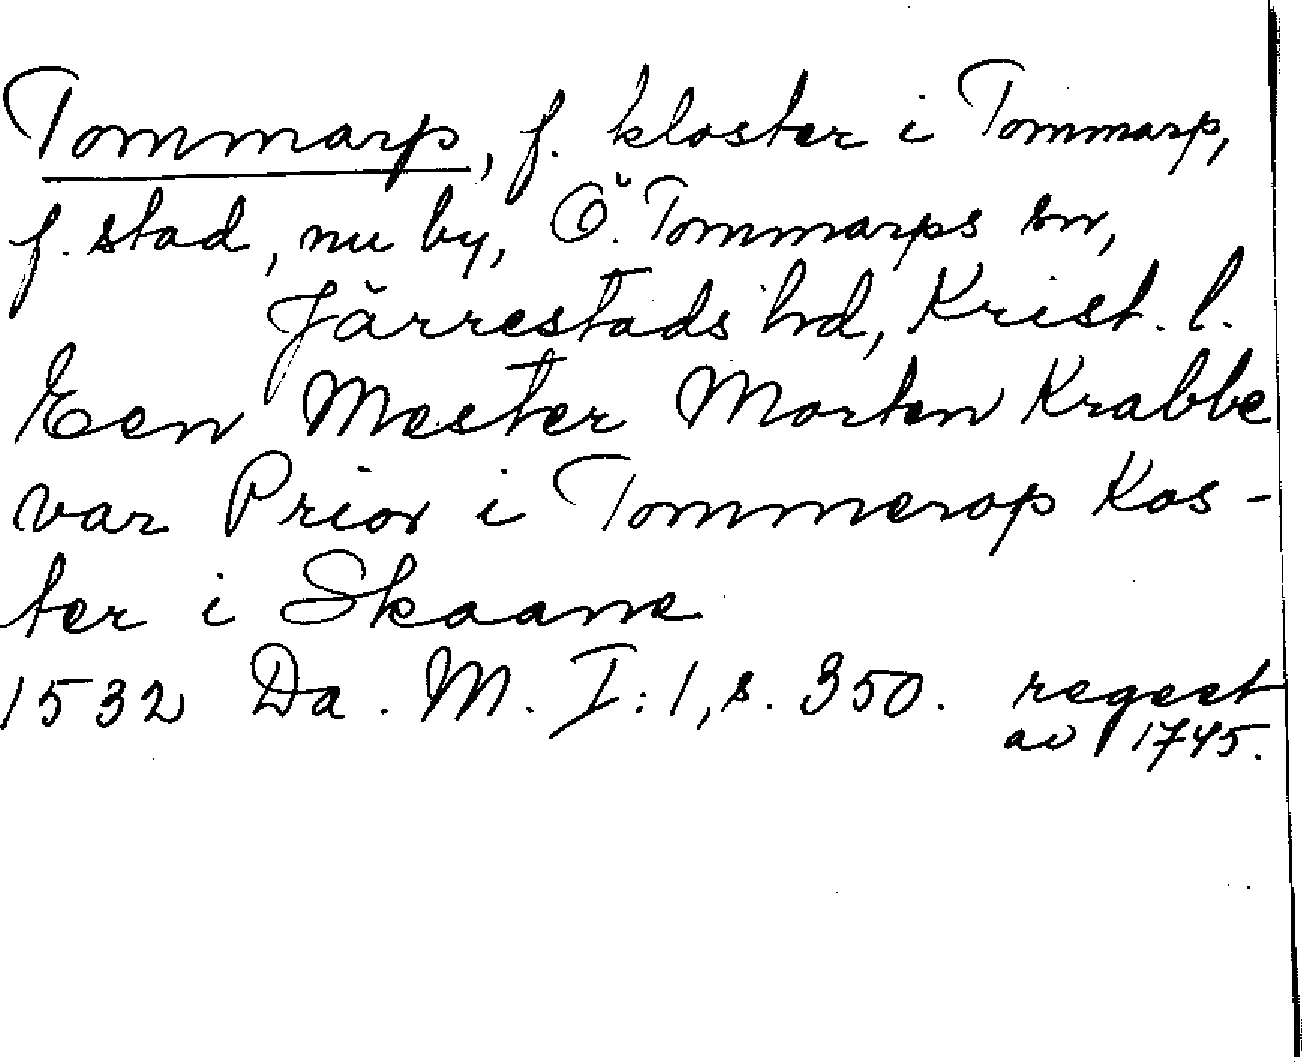 Tommarp, f. kloster i Tommarp,
f. stad, nu by, Ö. Tommarps sn,
Järrestads hd, Krist. l.
Een Mester Morten Krabbe
var Prior i Tommerop Kos-
ter i Skaane
1532 Da. M. I:1, s. 350. regest
av 1745.